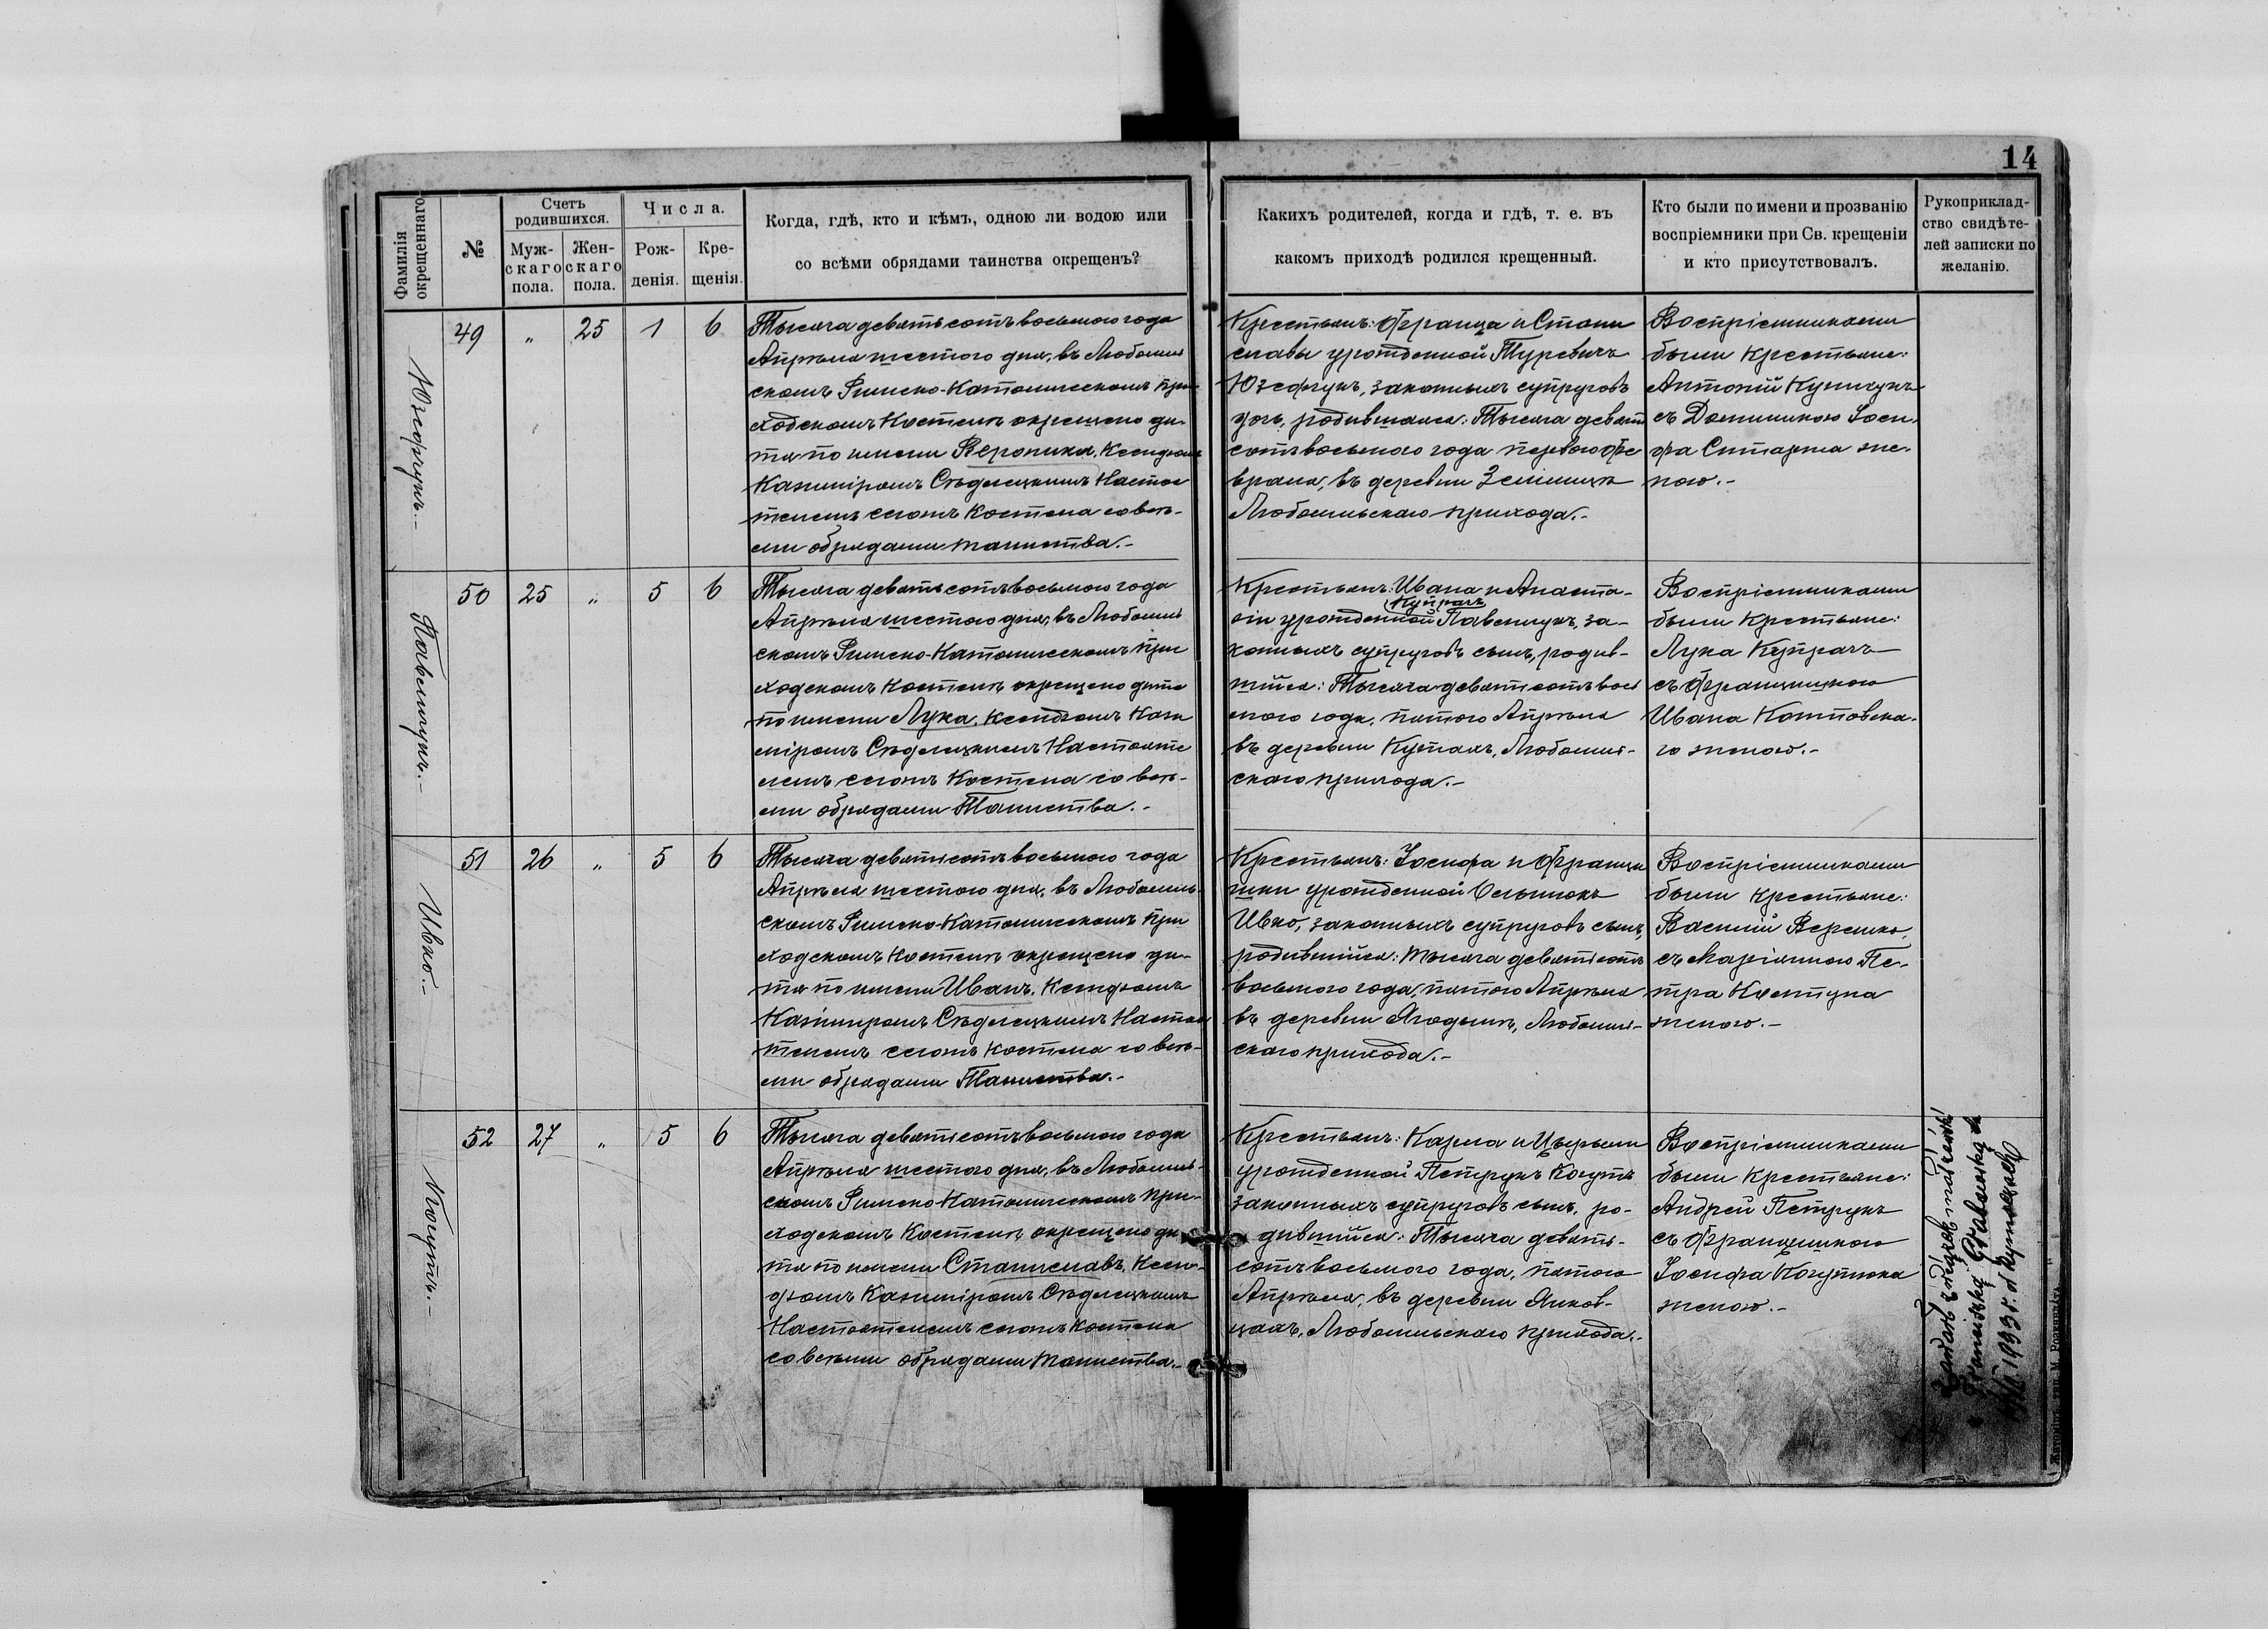 14
Фамилія
окрещеннаго
№
Счетъ
родившихся.
Муж-
скаго
пола.
Жен-
скаго
пола.
Числа.
Рож-
денія.
Кре-
щенія.
Когда, гдѣ, кто и кѣмъ, одною ли водою или
со всѣми обрядами таинства окрещенъ?
Какихъ родителей, когда и гдѣ, т. е. въ
какомъ приходѣ родился крещенный.
Кто были по имени и прозванію
воспріемники при Св. крещеніи
и кто присутствовалъ.
Рукоприклад-
ство свидѣте-
лей записки по
желанію.
Юзефчукъ.-
49 „ 25 1 6
Тысяча девятьсотъ восьмого года
Апрѣля шестого дня, въ Любомль
скомъ Римско-Католическомъ При
ходскомъ Костелѣ окрещено ди-
тя по имени Вероника, Ксендзомъ
Казиміромъ Сѣдлецкимъ Настоя
телемъ сегожъ Костела со всѣ-
ми обрядами таинства.-
Крестьянъ: Франца и Стани
славы урожденной Туревичъ
Юзефчукъ, законныхъ супруговъ
дочь, родившаяся: Тысяча девять
сотъ восьмого года перваго Фе
враля, въ деревни
Любомльскаго прихода.-
Воспріемниками
были Крестьяне:
Антоній
съ Доминикою Іоси-
фа же-
ною.-
Павельчукъ.-
50 25 „ 5 6
Тысяча девятьсотъ восьмого года
Апрѣля шестого дня, въ Любомль
скомъ Римско-Католическомъ При
ходскомъ Костелѣ окрещено дитя
по имени Лука, Ксендзомъ Кази
міромъ Сѣдлецкимъ Настояте
лемъ сегожъ Костела со всѣ-
ми обрядами Таинства.-
Крестьянъ: Ивана и Анаста-
Купрачъ
сіи урожденной Павельчукъ, за-
конныхъ супруговъ сынъ, родив-
шійся: Тысяча девятьсотъ вось
мого года, пятого Апрѣля
въ деревни Кутахъ, Любомль-
скаго прихода.-
Воспріемниками
были Крестьяне:
Лука Купрачъ
съ Францишкою
Ивана Котовска-
го женою.-
Ивко.-
51 26 „ 5 6
Тысяча девятьсотъ восьмого года
Апрѣля шестого дня, въ Любомль-
скомъ Римско-Католическомъ При
ходскомъ Костелѣ окрещено ди-
тя по имени Иванъ, Ксендзомъ
Казиміромъ Сѣдлецкимъ Настоя
телемъ сегожъ Костела со всѣ-
ми обрядами Таинства.-
Крестьянъ: Іосифа и Францi
шки урожденной
Ивко, законныхъ супруговъ сынъ,
родившійся: Тысяча девятьсотъ
восьмого года, пятого Апрѣля
въ деревни Ягодынѣ, Любомль-
скаго прихода.-
Воспріемниками
были Крестьяне:
Василій Веремко,
съ Маріанною Пе-
тра
женою.-
Когутъ.-
52 27 „ 5 6
Тысяча девятьсотъ восьмого года
Апрѣля шестого дня, въ Любомль-
скомъ Римско-Католическомъ При-
ходскомъ Костелѣ окрещено ди-
тя по имени Станиславъ, Ксен-
дзомъ Казиміромъ Сѣдлецкимъ
Настоятелемъ сегожъ Костела
со всѣми обрядами таинства.-
Крестьянъ: Карла и
урожденной Петрукъ Когутъ
законныхъ супруговъ сынъ, ро-
дившійся: Тысяча девять-
сотъ восьмого года, пятого
Апрѣля, въ деревни Янков-
цахъ, Любомльскаго прихода.-
Воспріемниками
были Крестьяне:
Андрей Петрукъ
съ Францишкою
Іосифа
женою.-
związek małżeński
1933 r.